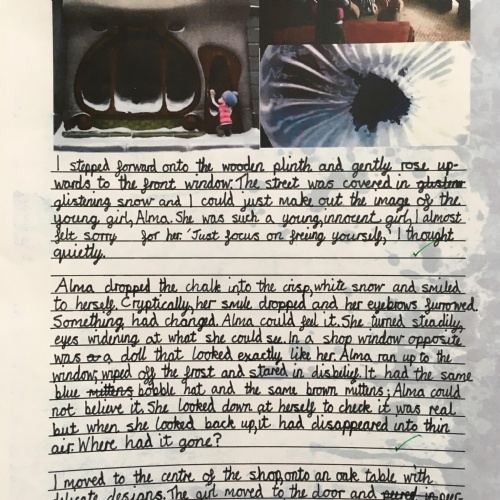 I stepped forward onto the wooden plinth and gently rose up-
wards to the front window. The street was covered in glistener
glistening snow and I could just make out the image of the
young girl, Alma. She was such a young, innocent girl, I almost
felt sorry for her. 'Just focus on freeing yourself,' I thought
quietly.
Alma dropped the chalk into the crisp, white snow and smiled
to herself. Cryptically, her smile dropped and her eyebrows furrowed.
Something had changed. Alma could feel it. She turned steadily,
eyes widening at what she could see. In a shop window opposite
was a a doll that looked exactly like her. Alma ran up to the
window, wiped off the frost and stared in disbelief. It had the same
blue mittens bobble hat and the same brown mittens; Alma could
not believe it. She looked down at herself to check it was real
but when she looked back up, it had disappeared into thin
air. Where had it gone?
I moved to the centre of the shop, onto an oak table with
delicate designs. The girl moved to the door and peered in per-